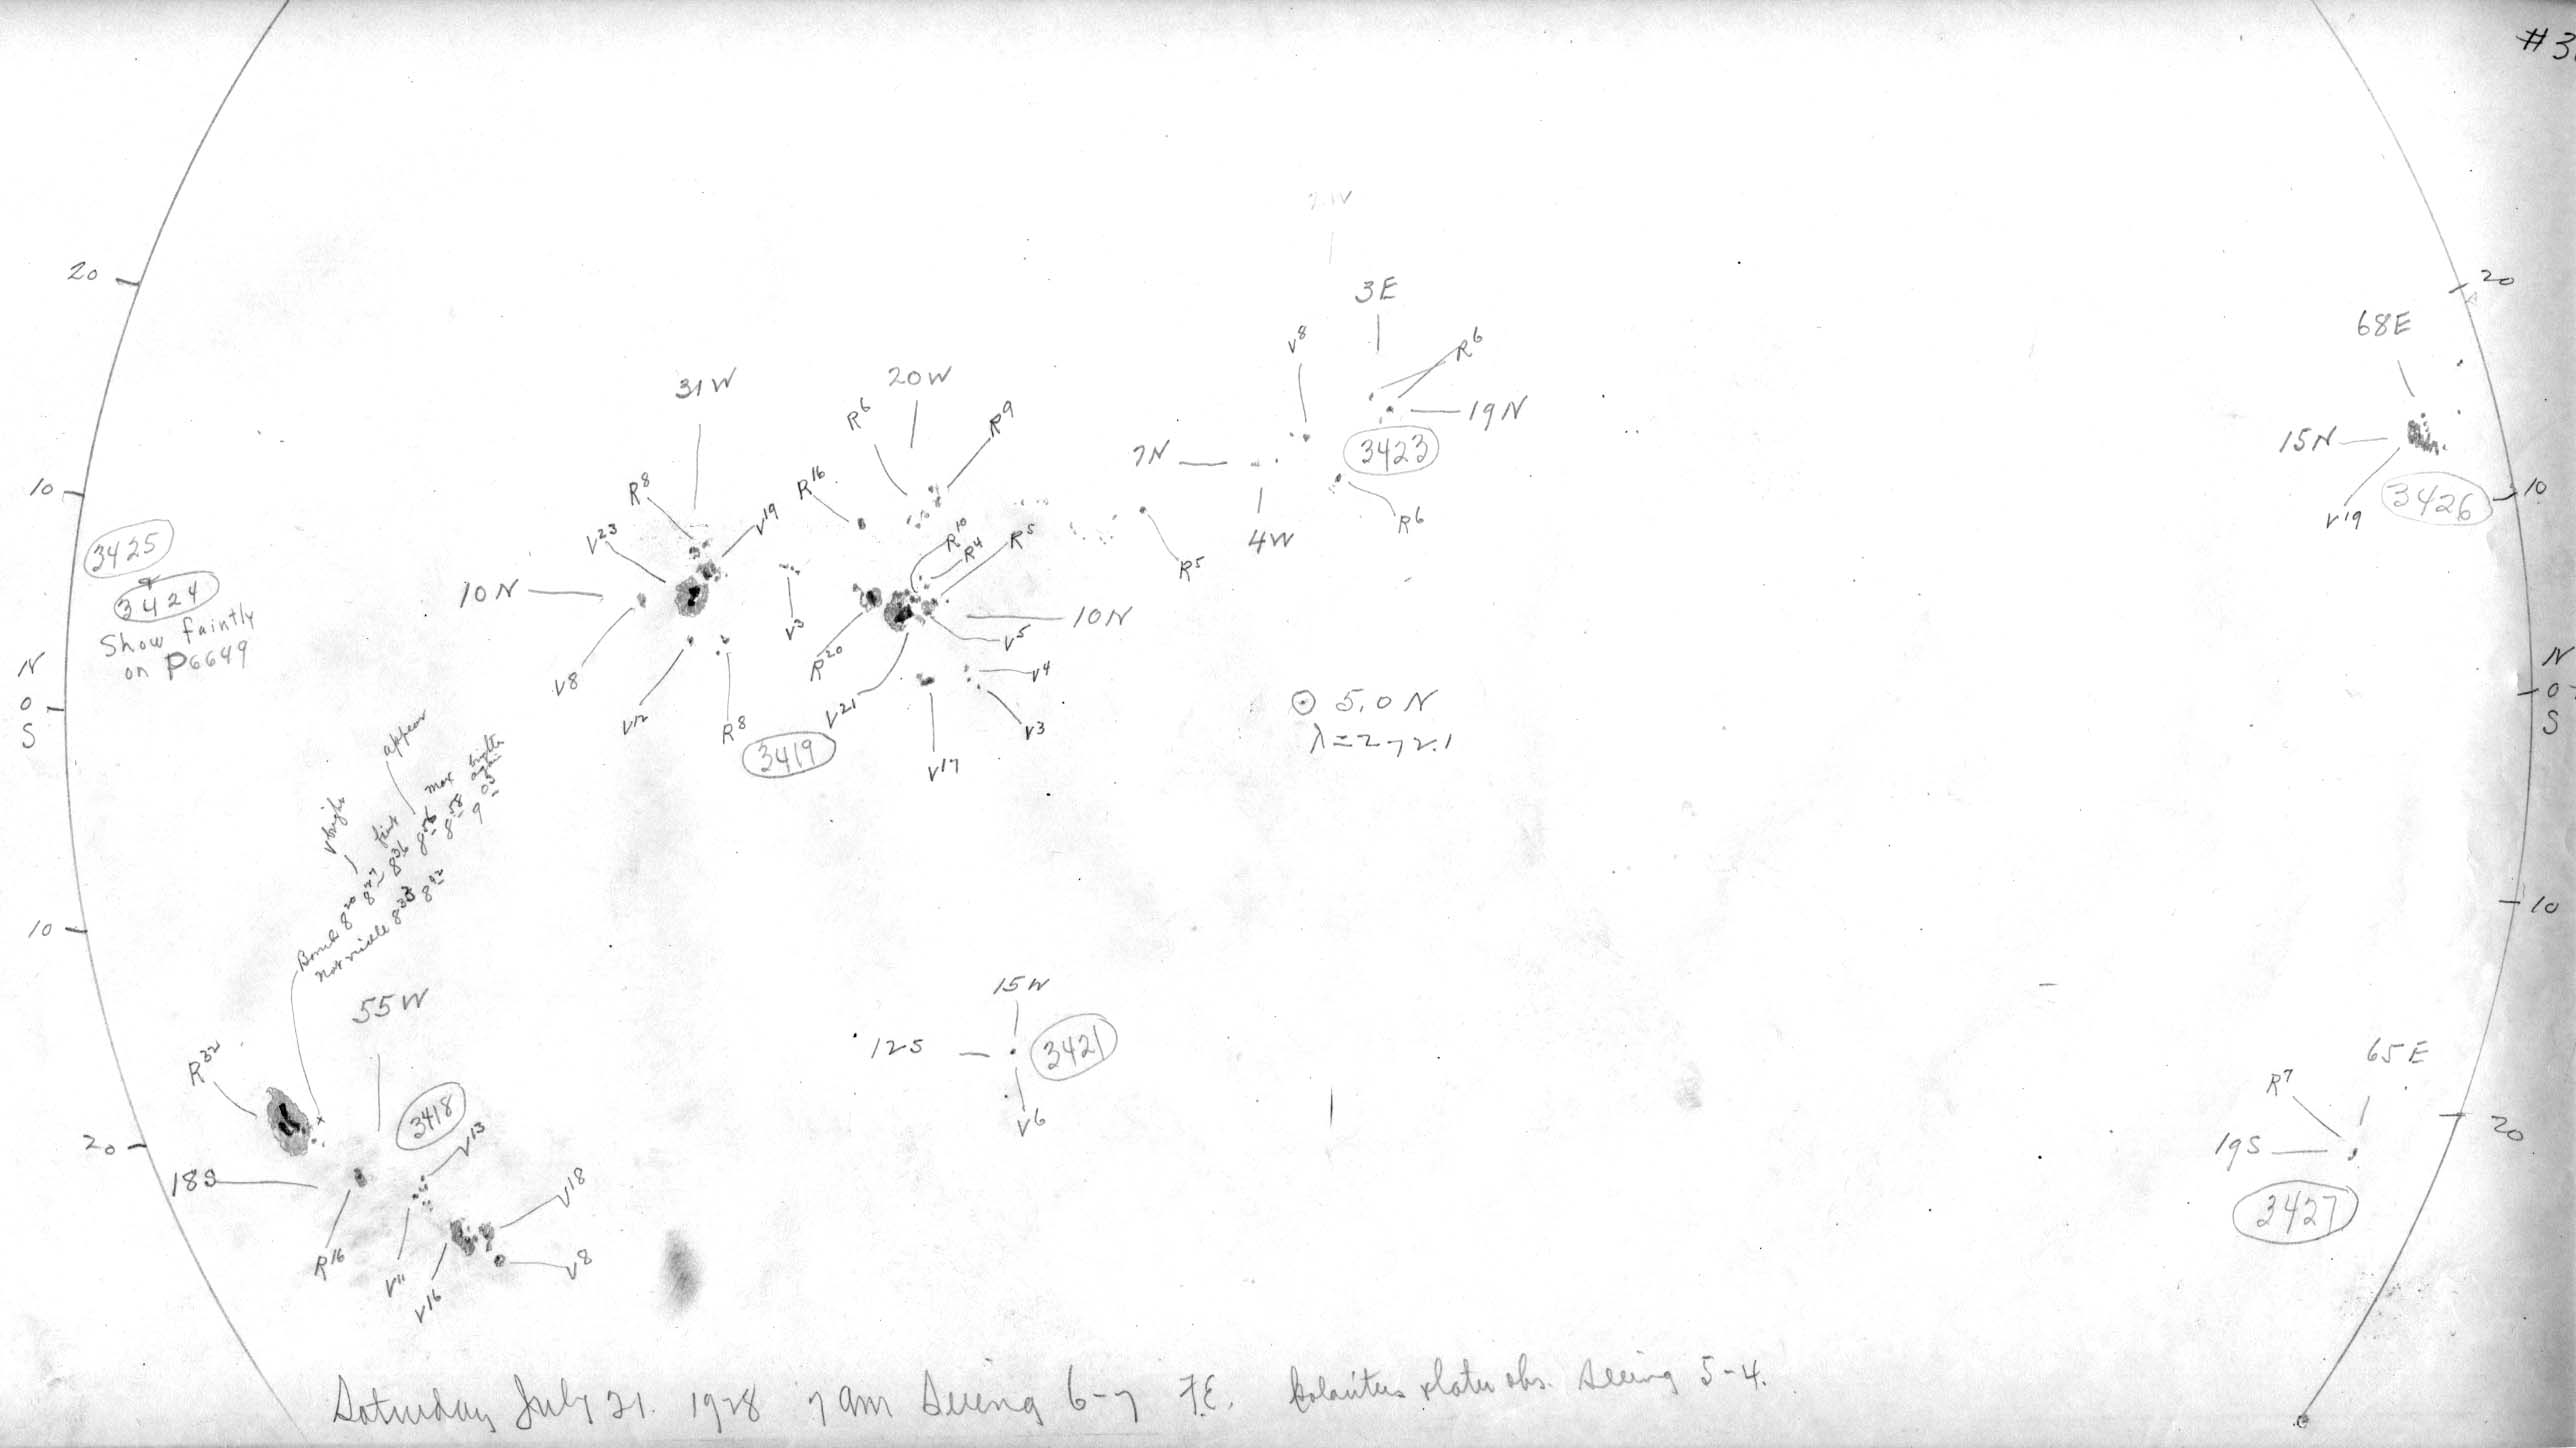 #3
20
20
3E
68E
V8
R6
31W
20W
R6
R9
19N
15N
7N
3423
R8
R16
V19
10
3426
10
V19
V23
R10
R4
R5
R6
4W
3425
3424
Show faintly
on P6649
10N
R5
10N
V3
V5
R20
V4
V8
V12
R8
V21
V3
V17
3419
N
0
S
N
0
S
⊙ 5.0 N
λ=272.1
appear
max
9 05
8 58
Bomb 8 20
not visible 8 33 8 42
10
10
55W
15W
12S
3421
V6
R32
3418
V13
20
18S
R16
V11
V16
V18
V8
65E
R7
20
19S
3427
Saturday July 21. 1928 7 am Seeing 6-7 F.E. obs. Seeing 5-4.